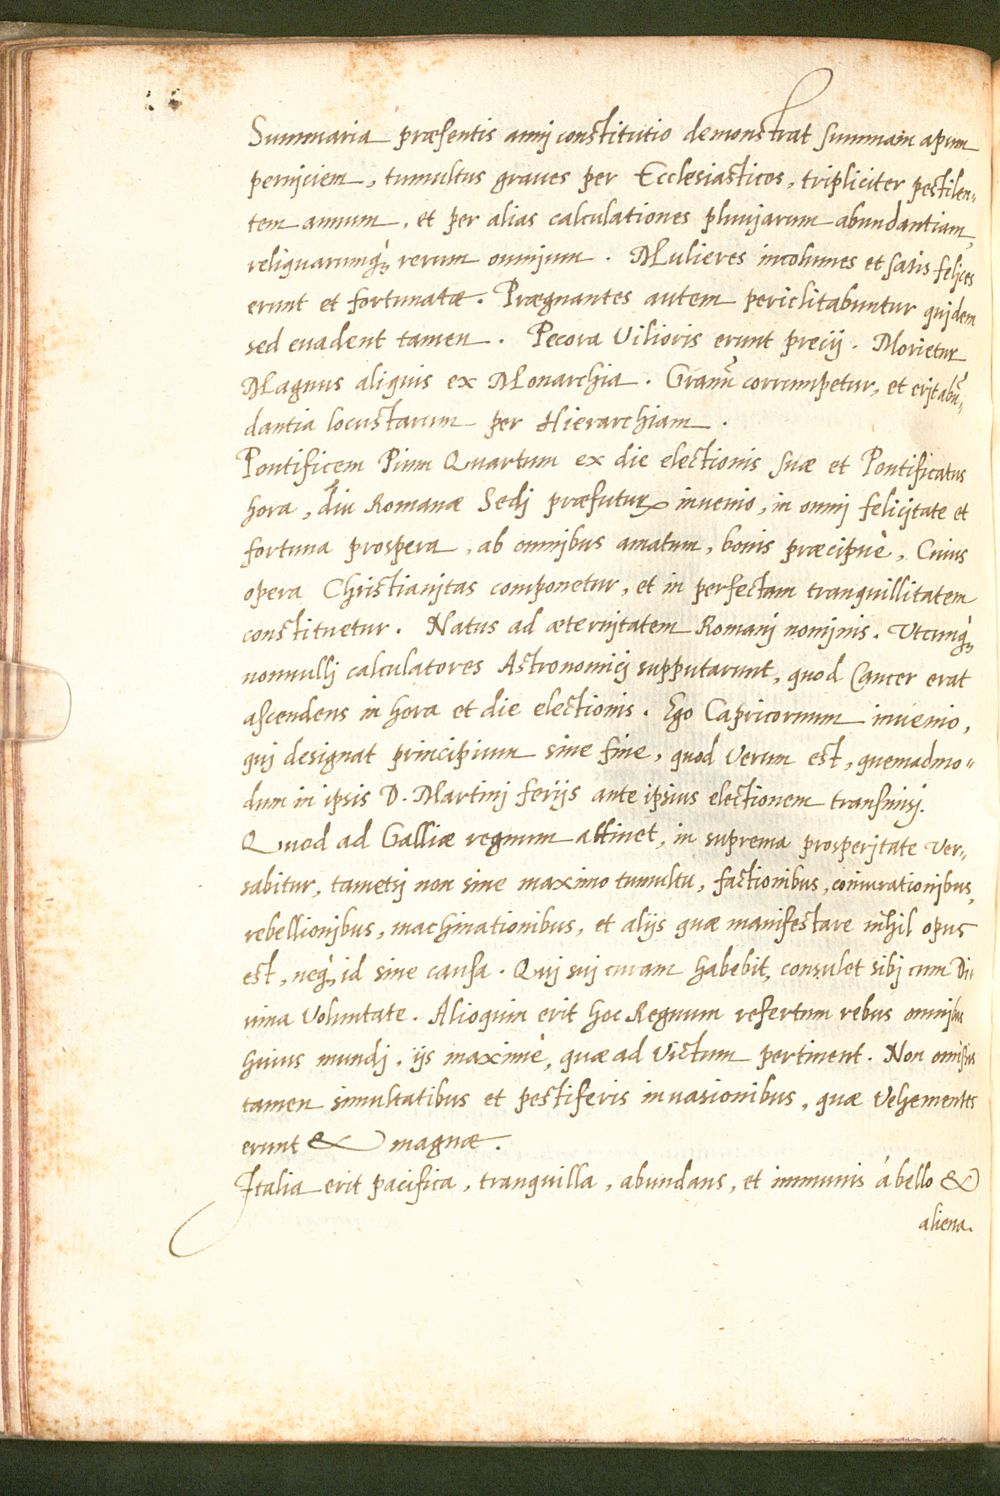 Summaria præsentis annj constitutio demonstrat summam apum
pernjciem, tumultus graues per Ecclesiasticos, tripliciter pestilen„
tem annum, et per alias calculationes pluujarum abundantiam,
reliquarumq́ꝫ rerum omnjum. Mulieres incolumes et satis feljces
erunt et fortunatæ. Prægnantes autem periclitabuntur qujdem
sed euadent tamen. Pecora Vilioris erunt precij. Morietur
Magnus aliquis ex Monarchia. Granũ corrumpetur, et erjt abũ„
dantia locustarum per Hierarchiam.
Pontificem Pium Quartum ex die electionis suæ et Pontificatus
hora, diu Romanæ Sedj præfuturũ inuenio, in omnj felicjtate et
fortuna prospera, ab omnjbus amatum, bonis præcipuè, Cuius
opera Christianjtas componetur, et in perfectam tranquillitatem
constituetur. Natus ad æternjtatem Romanj nomjnis. Utcunq́ꝫ
nonnullj calculatores Astronomicj supputarunt, quod Cancer erat
ascendens in hora et die electionis. Ego Capricornum inuenio,
quj designat principium sine fine, quod verum est, quemadmo„
dum in ipsis D. Martinj ferijs ante ipsius electionem transmisj.
Quod ad Galliæ regnum attinet, in suprema prosperjtate ver„
sabitur, tametsj non sine maximo tumultu, factionibus, coniurationjbus,
rebellionjbus, machinationibus, et alijs quæ manifestare nihil opus
est, neq́ꝫ id sine causa. Quj suj curam habebit, consulet sibj cum Di„
uina Voluntate. Alioquin erit hoc Regnum refertum rebus omnjbus
huius mundj, ijs maximè, quæ ad Victum pertinent. Non omissis
tamen simultatibus et pestiferis inuasionibus, quæ Vehementes
erunt & magnæ.
Italia erit pacifica, tranquilla, abundans, et immunis á bello &
aliena.